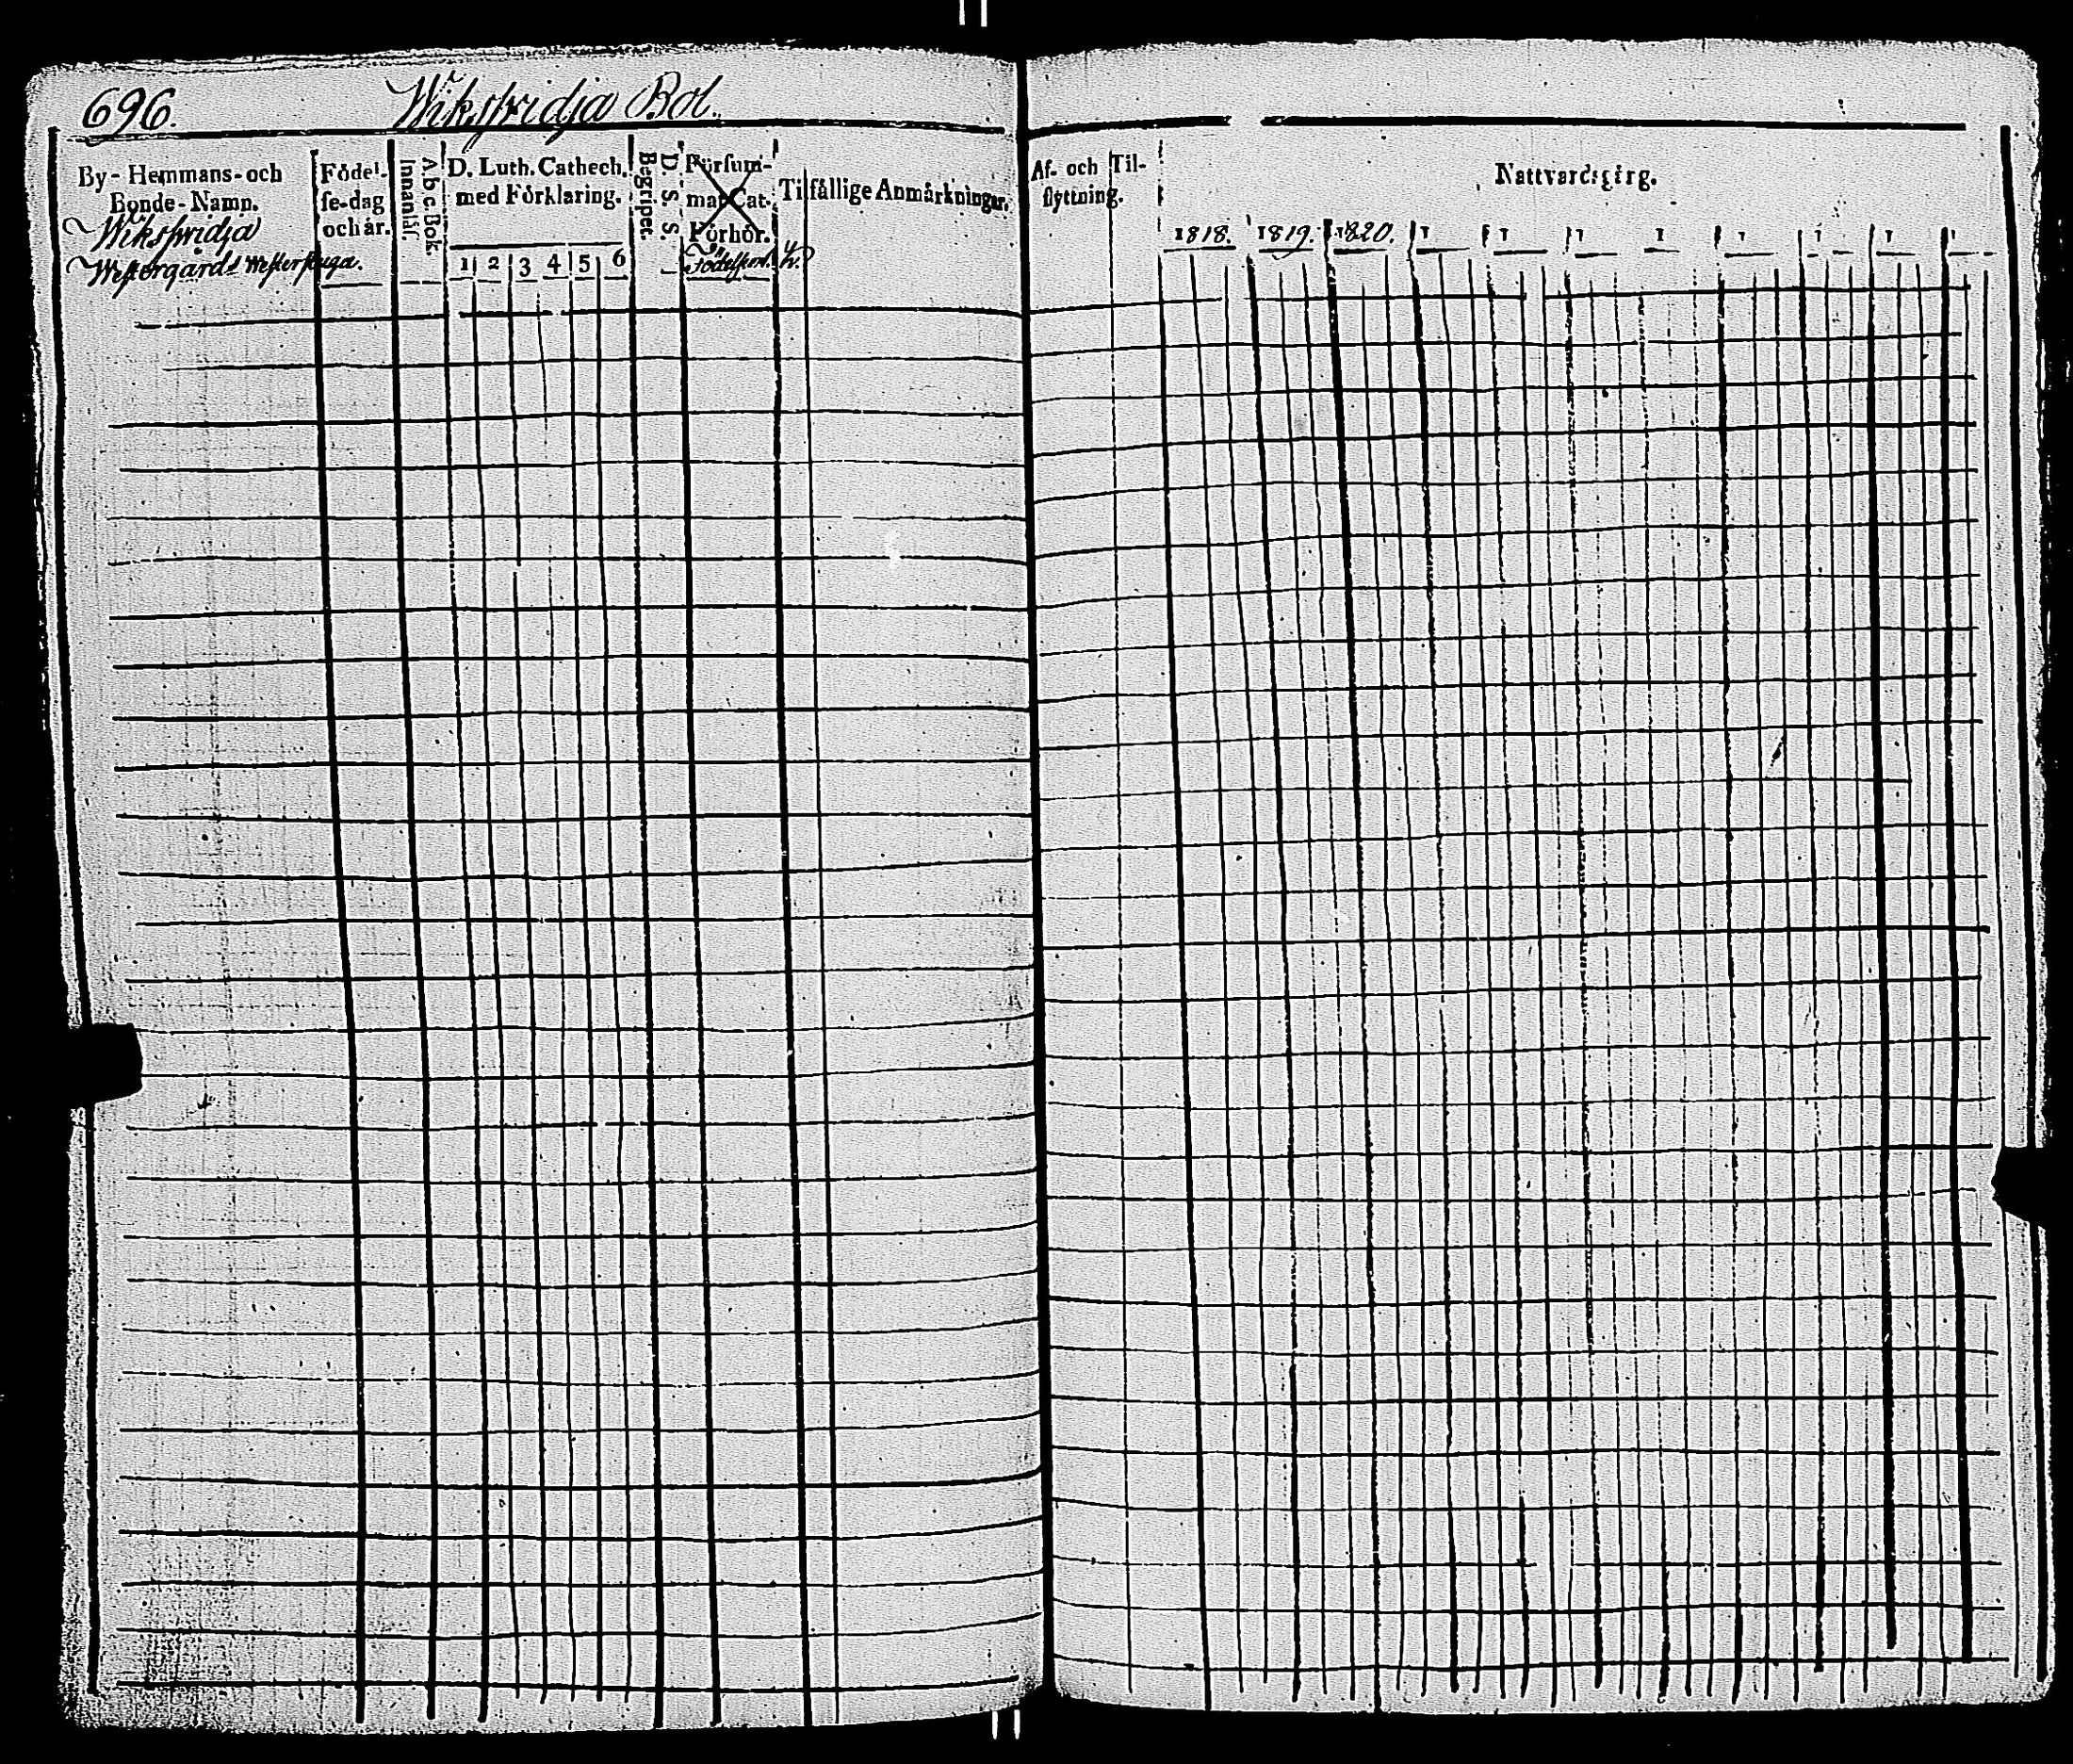 696.
Wiksfridja Bol.
By- Hemmans- och
Bonde- Namn.
Wiksfridja
Westergårds Westerstuga.
Födel-
se-dag
och år.
A. b. c. Bok.
Innanläs.
D. Luth. Cathech.
med Förklaring.
1 2 3 4 5 6
D. S. S.
Begripet.
Försum-
mat Cat.
Förhör.
Tilfällige Anmärkningar.
Af- och Til-
flyttning.
Nattvardsgång.
1818. 1819. 1820. 1 1 1 1 1 1 1 1